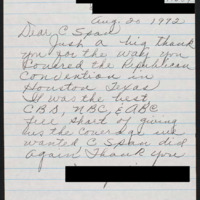 Aug. 20 1992
Dear C Span
Just a big thank
you for the way you
covered the Republican
Convention in
Houston Texas
It was the best
CBS, NBC, & ABC
fell short of giving
us the coverage we
wanted C Span did
Again Thank you